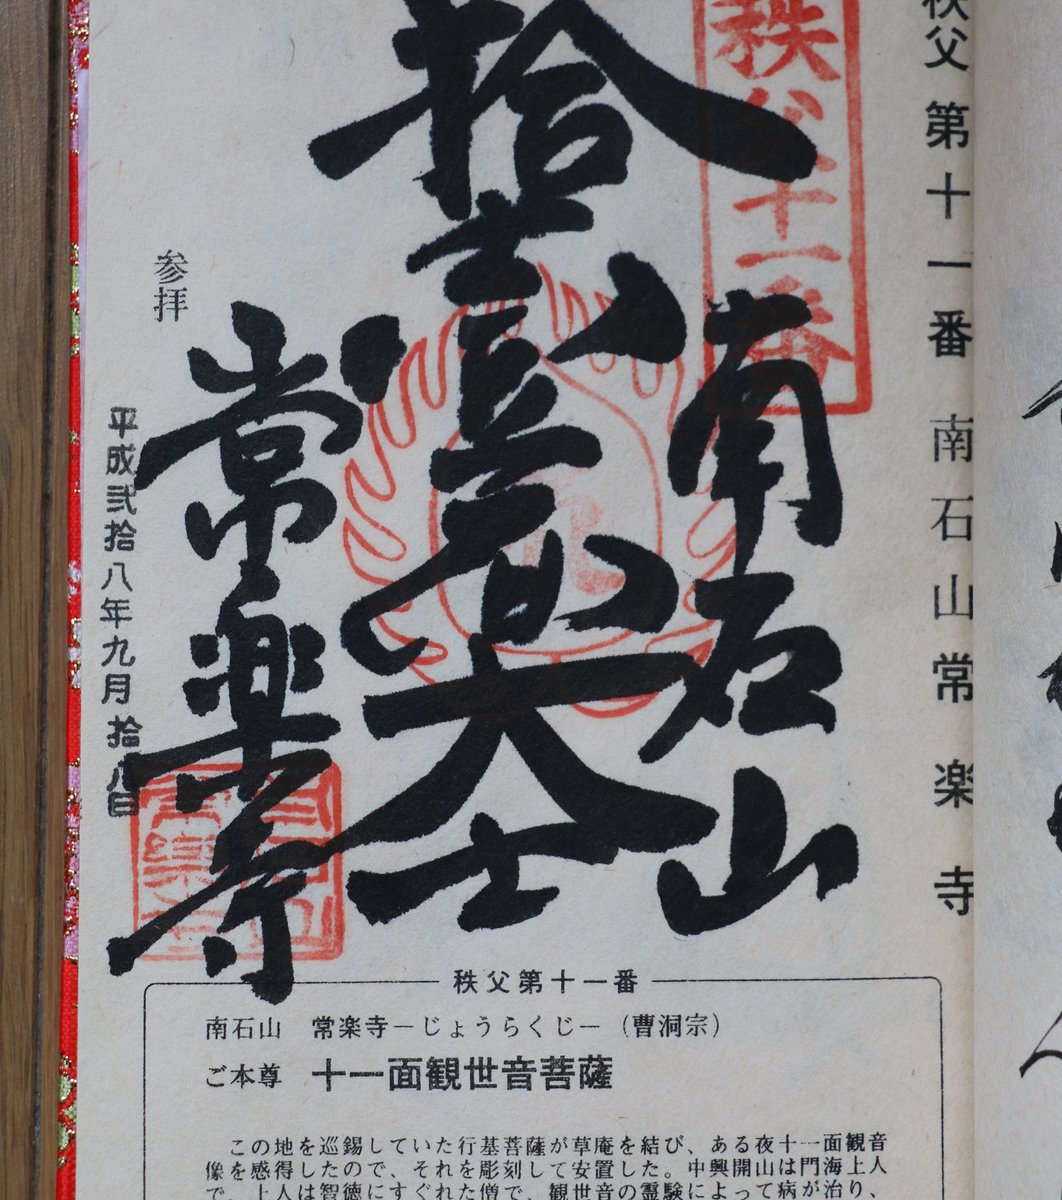 秩父第十一番 南石山常楽寺
秩父十一番
南石山
拾壹面大士
常楽寺
参拝
平成弐拾八年九月拾八日
秩父第十一番
南石山 常楽寺−じょうらくじ−（曹洞宗）
ご本尊 十一面観世音菩薩
この地を巡錫していた行基菩薩が草庵を結び、ある夜十一面観音
像を感得したので、それを彫刻して安置した。中興開山は門海上人
で、上人は智徳にすぐれた僧で、観世音の霊験によって病が治り、